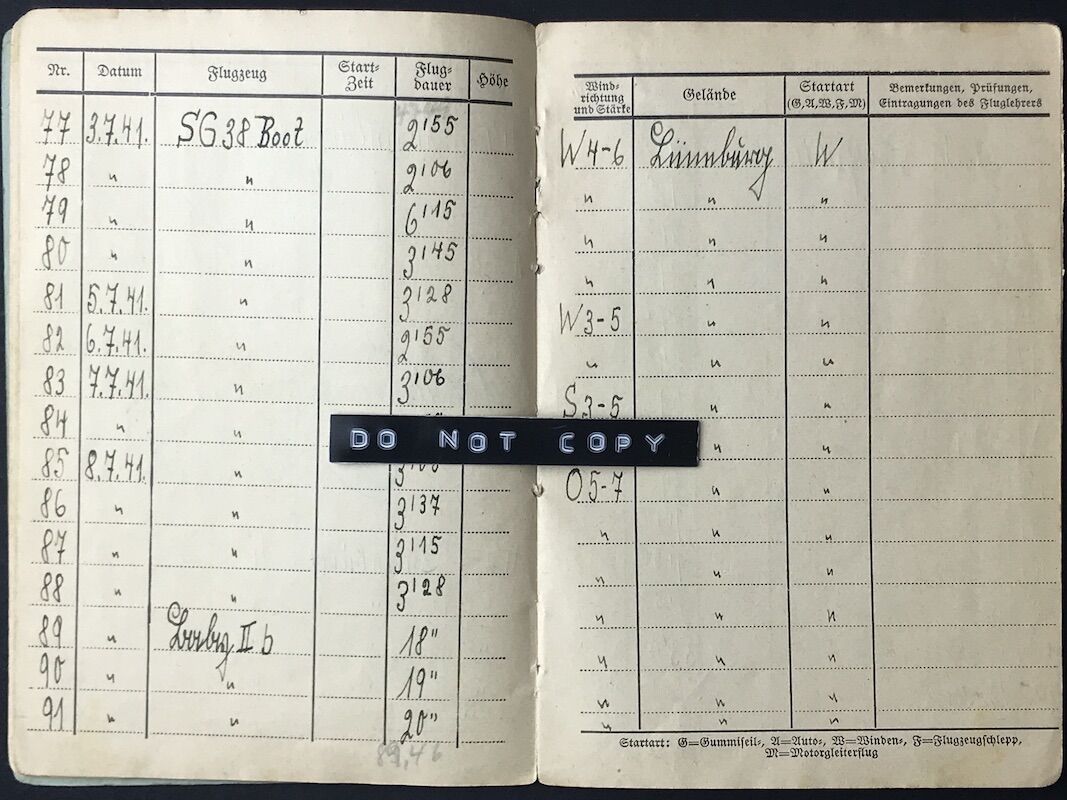 Nr. Datum Flugzeug Start-Zeit Flug-dauer Höhe
77 3.7.41. SG 38 Boot 2'55
78 " " 2'06
79 " " 6'15
80 " " 3'45
81 5.7.41. " 3'28
82 6.7.41. " 2'55
83 7.7.41. " 3'06
84 " "
85 8.7.41. "
86 " " 3'37
87 " " 3'15
88 " " 3'28
89 " Baby II b 18"
90 " " 19"
91 " " 20"
DO NOT COPY
Wind-richtung und Stärke Gelände Startart (G,A,W,F,M) Bemerkungen, Prüfungen, Eintragungen des Fluglehrers
W 4-6 Lüneburg W
" " "
" " "
" " "
W 3-5 " "
" " "
S 3-5 " "
" "
O 5-7 " "
" " "
" " "
" " "
" " "
" " "
" " "
Startart: G=Gummiseil-, A=Auto-, W=Winden-, F=Flugzeugschlepp,
M=Motorgleiterflug